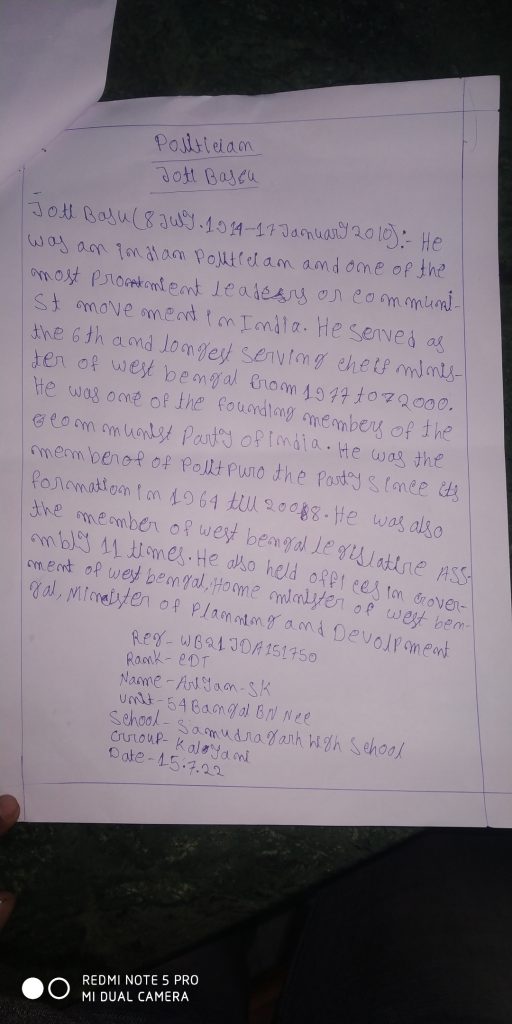 Politician
Joti Basu
Joti Basu (8 July.1914-17 January 2010):- He
was an indian politician and one of the
most Prominient leaders or communi-
st movement in India. He served as
the 6th and longest serving cheif minis-
ter of west bengal from 1977 to 2000.
He was one of the founding members of the
communist Party of india. He was the
memberof of politpuro the Party since its
formation in 1964 till 2008. He was also
the member of west bengal legislative Ass-
mbly 11 times. He also held offices in Gover-
ment of west bengal, Home minister of west ben-
gal, Minister of Planning and Devolpment
Reg- WB21JDA151750
Rank- CDT
Name- Ariyan-SK
Unit- 54 Bangal BN Ncc
School- Samudragarh high School
Group- Kalyani
Date-15.7.22
REDMI NOTE 5 PRO
MI DUAL CAMERA